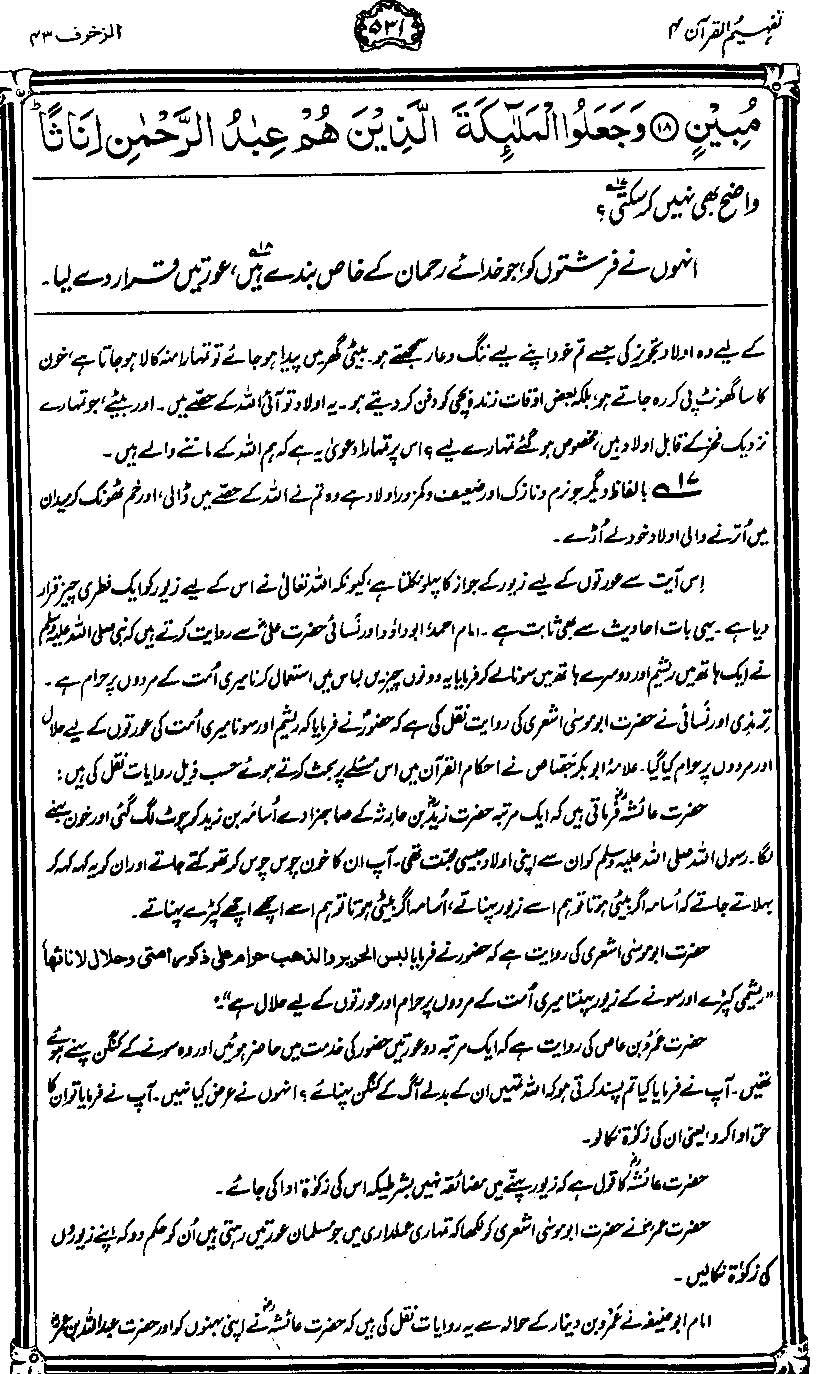 تفہیم القرآن ۴
۵۳۱
الزخرف ۴۳
مُبِيْنٍ ⑱ وَجَعَلُوا الْمَلٰٓئِكَةَ الَّذِيْنَ هُمْ عِبٰدُ الرَّحْمٰنِ اِنَاثًا ؕ
واضح بھی نہیں کر سکتی؟ ۱۷؎
انہوں نے فرشتوں کو، جو خدائے رحمان کے خاص بندے ہیں ۱۸؎، عورتیں قرار دے لیا۔
کے لیے وہ اولاد تجویز کی جسے تم خود اپنے لیے ننگ و عار سمجھتے ہو۔ بیٹی گھر میں پیدا ہو جائے تو تمہارا منہ کالا ہو جاتا ہے، خون
کا سا گھونٹ پی کر رہ جاتے ہو، بلکہ بعض اوقات زندہ بچی کو دفن کر دیتے ہو۔ یہ اولاد تو آئی اللہ کے حصے میں۔ اور بیٹے، جو تمہارے
نزدیک فخر کے قابل اولاد ہیں، مخصوص ہو گئے تمہارے لیے؟ اس پر تمہارا دعویٰ یہ ہے کہ ہم اللہ کے ماننے والے ہیں۔
۱۷؎ بالفاظ دیگر جو نرم و نازک اور ضعیف و کمزور اولاد ہے وہ تم نے اللہ کے حصے میں ڈالی، اور خم ٹھونک کر میدان
میں اُترنے والی اولاد خود لے اُڑے۔
اِس آیت سے عورتوں کے لیے زیور کے جواز کا پہلو نکلتا ہے، کیونکہ اللہ تعالیٰ نے اس کے لیے زیور کو ایک فطری چیز قرار
دیا ہے۔ یہی بات احادیث سے بھی ثابت ہے۔ امام احمد، ابو داؤد اور نسائی حضرت علیؓ سے روایت کرتے ہیں کہ نبی صلی اللہ علیہ وسلم
نے ایک ہاتھ میں ریشم اور دوسرے ہاتھ میں سونا لے کر فرمایا یہ دونوں چیزیں لباس میں استعمال کرنا میری اُمت کے مردوں پر حرام ہے۔
ترمذی اور نسائی نے حضرت ابو موسیٰ اشعری کی روایت نقل کی ہے کہ حضورؐ نے فرمایا کہ ریشم اور سونا میری اُمت کی عورتوں کے لیے حلال
اور مردوں پر حرام کیا گیا۔ علامہ ابوبکر جصاص نے احکام القرآن میں اس مسئلے پر بحث کرتے ہوئے حسب ذیل روایات نقل کی ہیں:
حضرت عائشہؓ فرماتی ہیں کہ ایک مرتبہ حضرت زیدؓ بن حارثہ کے صاحبزادے اُسامہ بن زید کو چوٹ لگ گئی اور خون بہنے
لگا۔ رسول اللہ صلی اللہ علیہ وسلم کو ان سے اپنی اولاد جیسی محبت تھی۔ آپ ان کا خون چوس چوس کر تھوکتے جاتے اور ان کو یہ کہہ کہہ کر
بہلاتے جاتے کہ اُسامہ اگر بیٹی ہوتا تو ہم اسے زیور پہناتے، اُسامہ اگر بیٹی ہوتا تو ہم اسے اچھے اچھے کپڑے پہناتے۔
حضرت ابو موسیٰ اشعری کی روایت ہے کہ حضور نے فرمایا لبس الحریر والذھب حرام علی ذکور امتی وحلال لاناثھا
"ریشمی کپڑے اور سونے کے زیور پہننا میری اُمت کے مردوں پر حرام اور عورتوں کے لیے حلال ہے"۔
حضرت عمرؓو بن عاص کی روایت ہے کہ ایک مرتبہ دو عورتیں حضور کی خدمت میں حاضر ہوئیں اور وہ سونے کے کنگن پہنے ہوئے
تھیں۔ آپ نے فرمایا کیا تم پسند کرتی ہو کہ اللہ تمہیں ان کے بدلے آگ کے کنگن پہنائے؟ انہوں نے عرض کیا نہیں۔ آپ نے فرمایا تو ان کا
حق ادا کرو، یعنی ان کی زکوٰۃ نکالو۔
حضرت عائشہؓ کا قول ہے کہ زیور پہننے میں مضائقہ نہیں بشرطیکہ اس کی زکوٰۃ ادا کی جائے۔
حضرت عمرؓ نے حضرت ابو موسیٰ اشعری کو لکھا کہ تمہاری عملداری میں جو مسلمان عورتیں رہتی ہیں اُن کو حکم دو کہ اپنے زیوروں
کی زکوٰۃ نکالیں۔
امام ابو حنیفہ نے عمرو بن دینار کے حوالہ سے یہ روایات نقل کی ہیں کہ حضرت عائشہؓ نے اپنی بہنوں کو اور حضرت عبداللہ بن عمرؓ